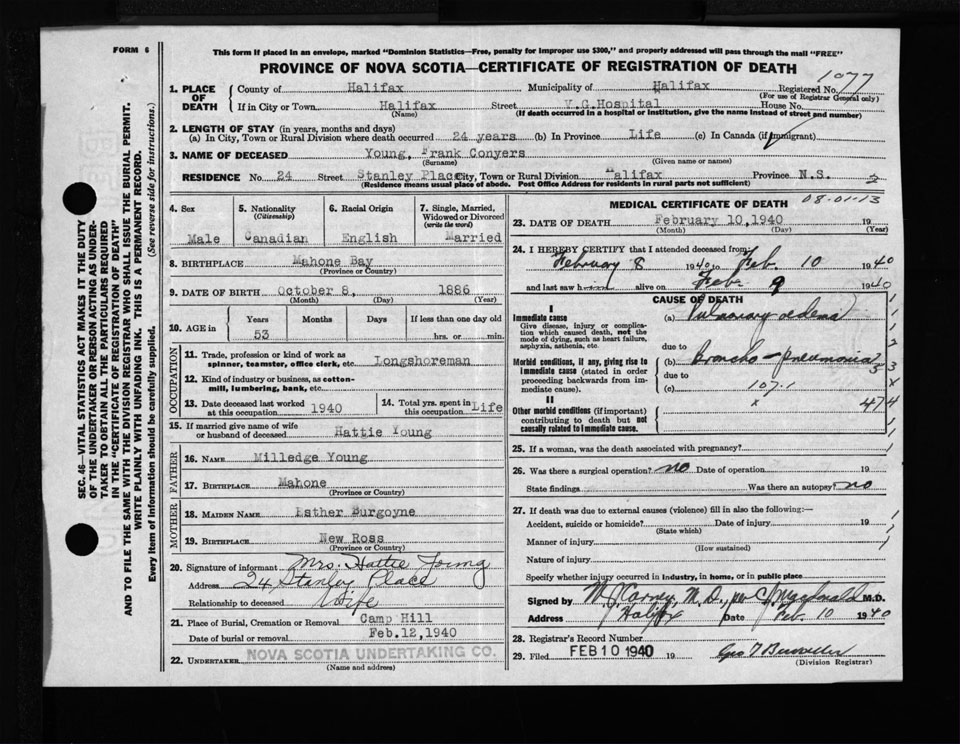 FORM 6
This form if placed in an envelope, marked "Dominion Statistics—Free, penalty for improper use $300," and properly addressed will pass through the mail "FREE"
PROVINCE OF NOVA SCOTIA—CERTIFICATE OF REGISTRATION OF DEATH
1077
1. PLACE OF DEATH
County of Halifax Municipality of Halifax Registered No.
(For use of Registrar General only)
If in City or Town Halifax Street V.G.Hospital House No.
(Name) (If death occurred in a hospital or institution, give the name instead of street and number)
2. LENGTH OF STAY (in years, months and days)
(a) In City, Town or Rural Division where death occurred 24 years (b) In Province Life (c) In Canada (if immigrant)
3. NAME OF DECEASED Young, Frank Conyers
(Surname) (Given name or names)
RESIDENCE No. 24 Street Stanley Place City, Town or Rural Division Halifax Province N.S.
(Residence means usual place of abode. Post Office Address for residents in rural parts not sufficient)
SEC. 46—VITAL STATISTICS ACT MAKES IT THE DUTY
OF THE UNDERTAKER OR PERSON ACTING AS UNDER-
TAKER TO OBTAIN ALL THE PARTICULARS REQUIRED
IN THE "CERTIFICATE OF REGISTRATION OF DEATH"
AND TO FILE THE SAME WITH THE DIVISION REGISTRAR WHO SHALL ISSUE THE BURIAL PERMIT.
WRITE PLAINLY WITH UNFADING INK. THIS IS A PERMANENT RECORD.
Every item of information should be carefully supplied. (See reverse side for instructions.)
4. Sex
Male
5. Nationality
(Citizenship)
Canadian
6. Racial Origin
English
7. Single, Married,
Widowed or Divorced
(write the word)
Married
8. BIRTHPLACE Mahone Bay
(Province or Country)
9. DATE OF BIRTH October 8, 1886
(Month) (Day) (Year)
10. AGE in
Years Months Days If less than one day old
53 hrs. or min.
OCCUPATION
11. Trade, profession or kind of work as
spinner, teamster, office clerk, etc. Longshoreman
12. Kind of industry or business, as cotton-
mill, lumbering, bank, etc.
13. Date deceased last worked
at this occupation 1940
14. Total yrs. spent in
this occupation Life
15. If married give name of wife
or husband of deceased Hattie Young
FATHER
16. Name Milledge Young
17. Birthplace Mahone
(Province or Country)
MOTHER
18. Maiden Name Esther Burgoyne
19. Birthplace New Ross
(Province or Country)
20. Signature of informant Mrs. Hattie Young
Address 24 Stanley Place
Relationship to deceased Wife
21. Place of Burial, Cremation or Removal Camp Hill
Date of burial or removal Feb.12,1940
22. Undertaker NOVA SCOTIA UNDERTAKING CO.
(Name and address)
MEDICAL CERTIFICATE OF DEATH 08-01-13
23. DATE OF DEATH February 10,1940 19
(Month) (Day) (Year)
24. I HEREBY CERTIFY that I attended deceased from:
February 8 1940 to Feb. 10 1940
and last saw him alive on Feb 9 1940
CAUSE OF DEATH
I
Immediate cause
Give disease, injury or complica-
tion which caused death, not the
mode of dying, such as heart failure,
asphyxia, asthenia, etc.
(a) Pulmonary oedema
due to
Morbid conditions, if any, giving rise to
immediate cause (stated in order
proceeding backwards from im-
mediate cause).
(b) Broncho-pneumonia
due to
(c) 107.1
II
Other morbid conditions (if important)
contributing to death but not
causally related to immediate cause.
474
25. If a woman, was the death associated with pregnancy?
26. Was there a surgical operation? no Date of operation 19
State findings Was there an autopsy? no
27. If death was due to external causes (violence) fill in also the following:—
Accident, suicide or homicide? Date of injury 19
(State which)
Manner of injury
(How sustained)
Nature of injury
Specify whether injury occurred in industry, in home, or in public place
Signed by M J Carney, M.D., per C J Macdonald M.D.
Address Halifx Date Feb. 10 1940
28. Registrar's Record Number
29. Filed FEB 10 1940 19
(Division Registrar)